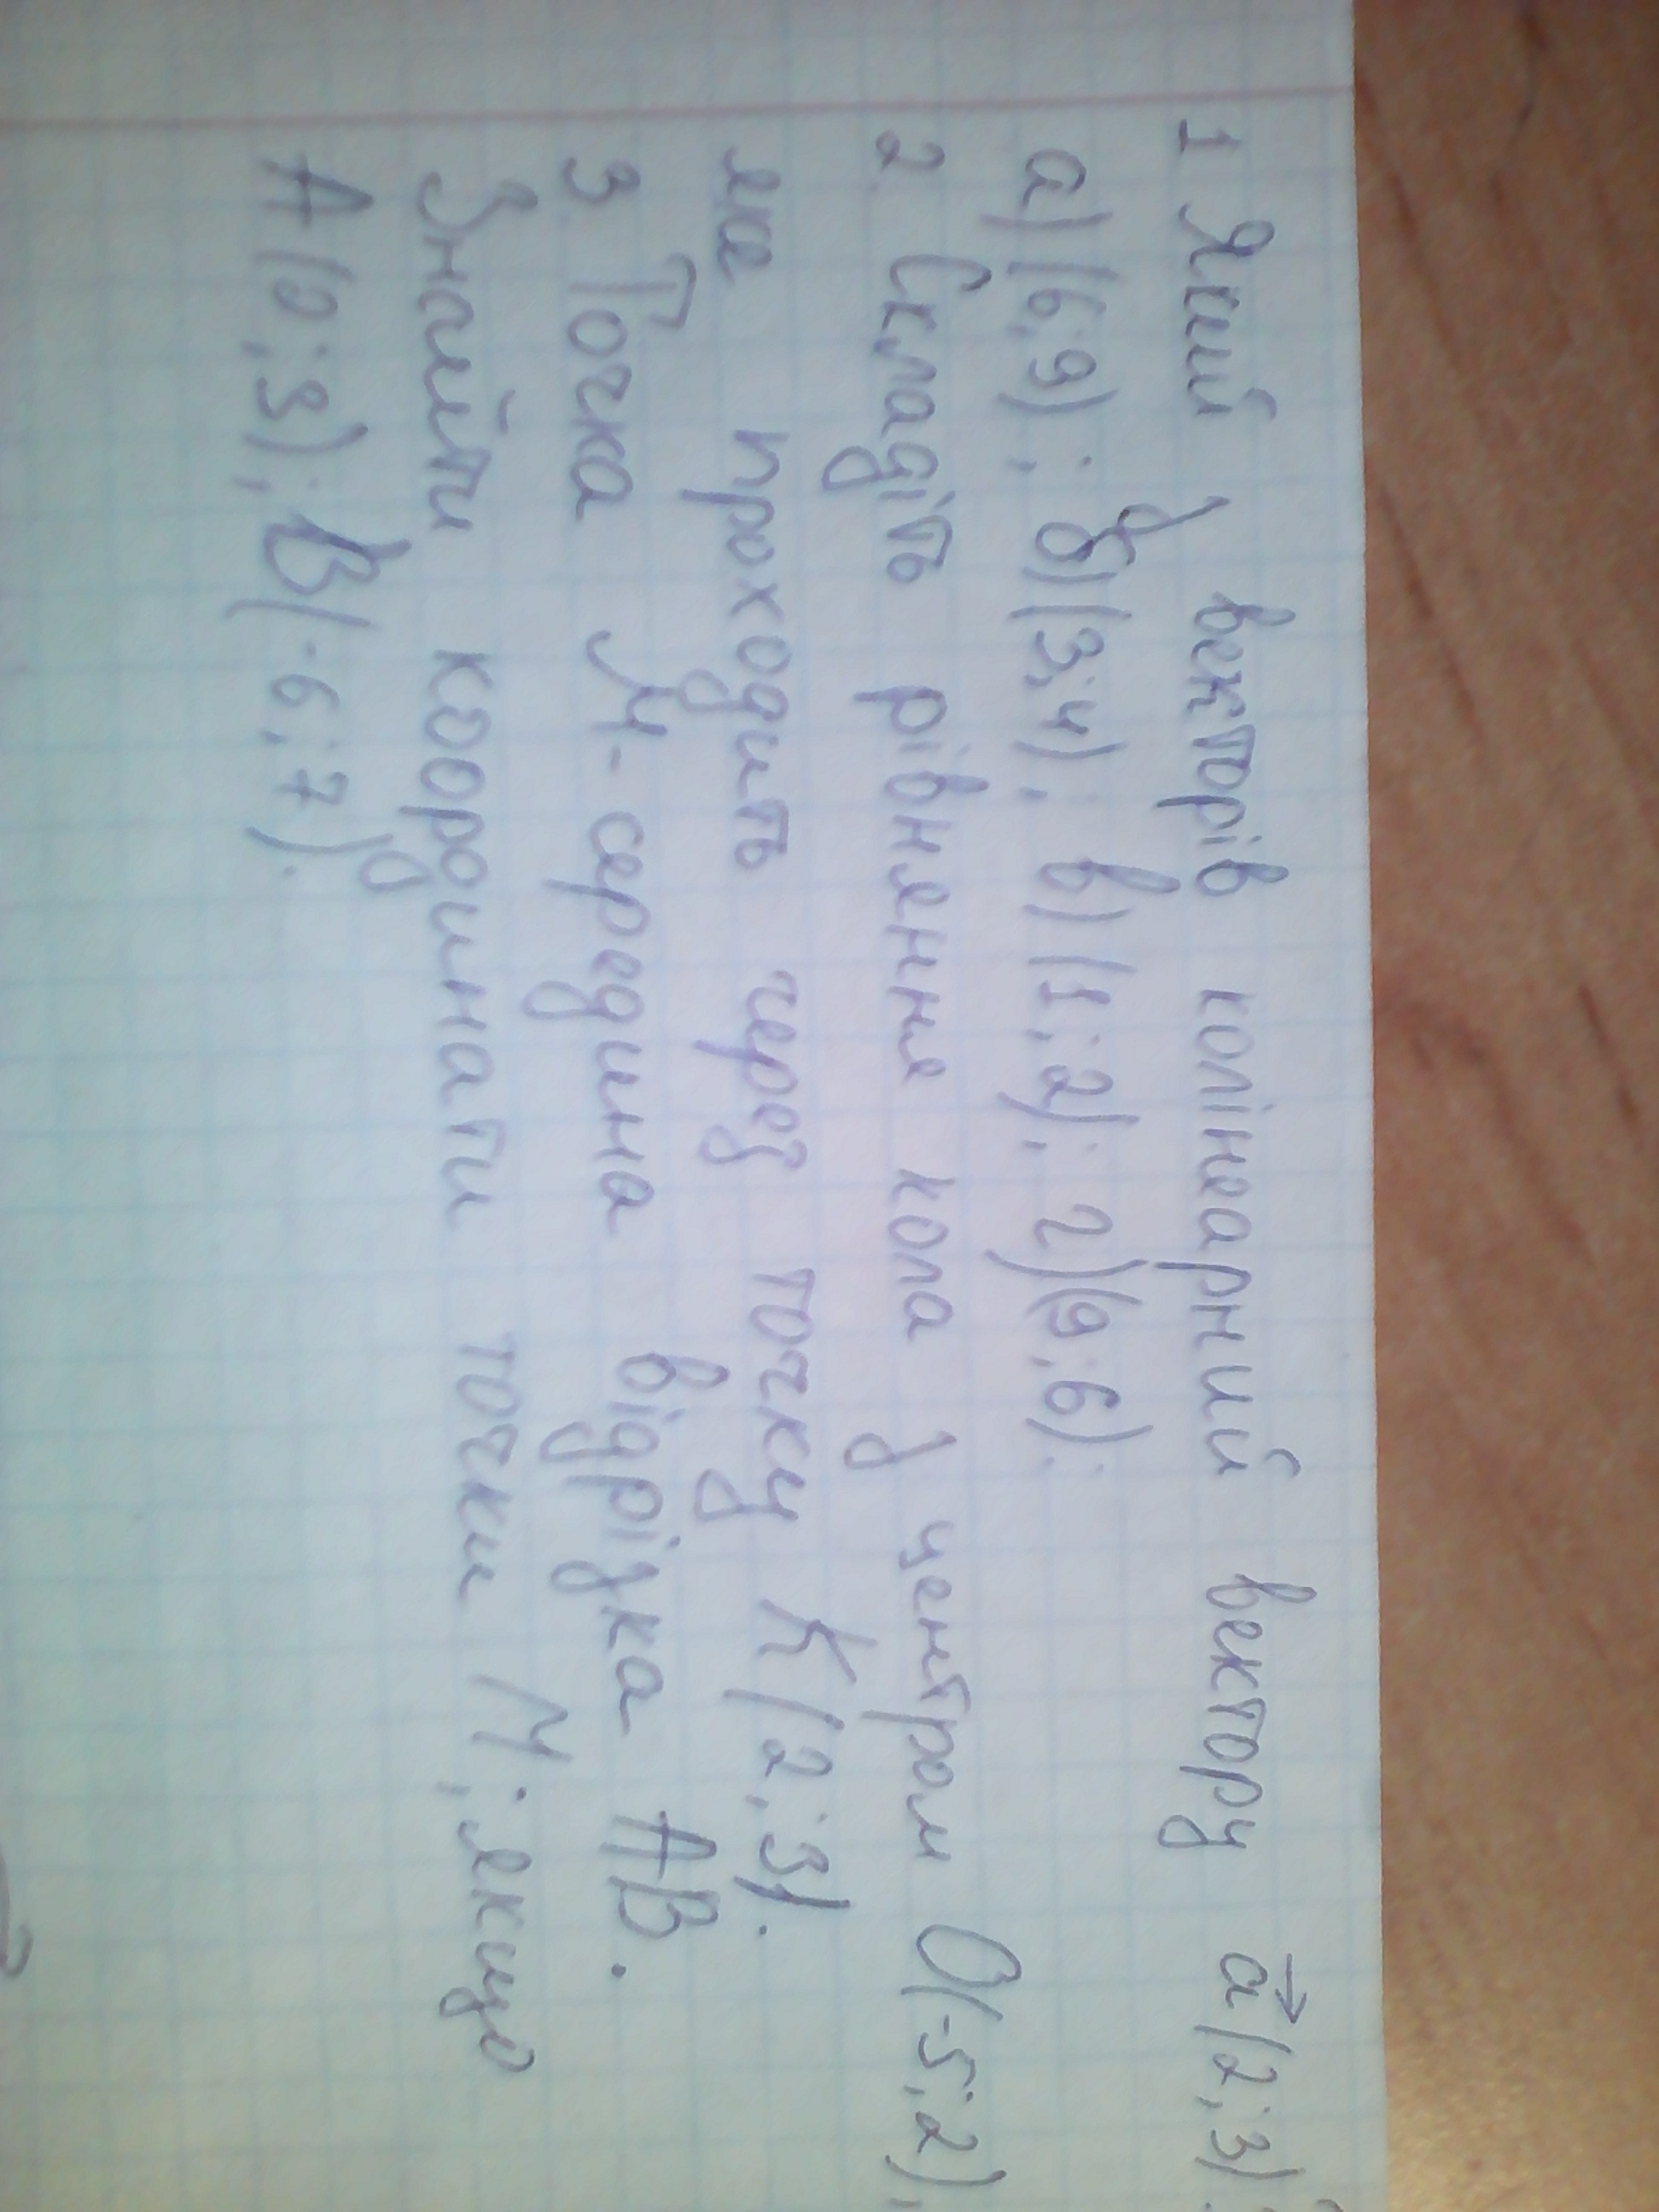 1 Який з векторів колінеарний вектору a⃗(2;3)?
а)(6;9); б)(3;4); в)(1;2); г)(9;6).
2 Складіть рівняння кола з центром О(-5;2),
яке проходить через точку К(2;3).
3 Точка М-середина відрізка АВ.
Знайти координати точки М; якщо
А(0;3); В(-6;7).